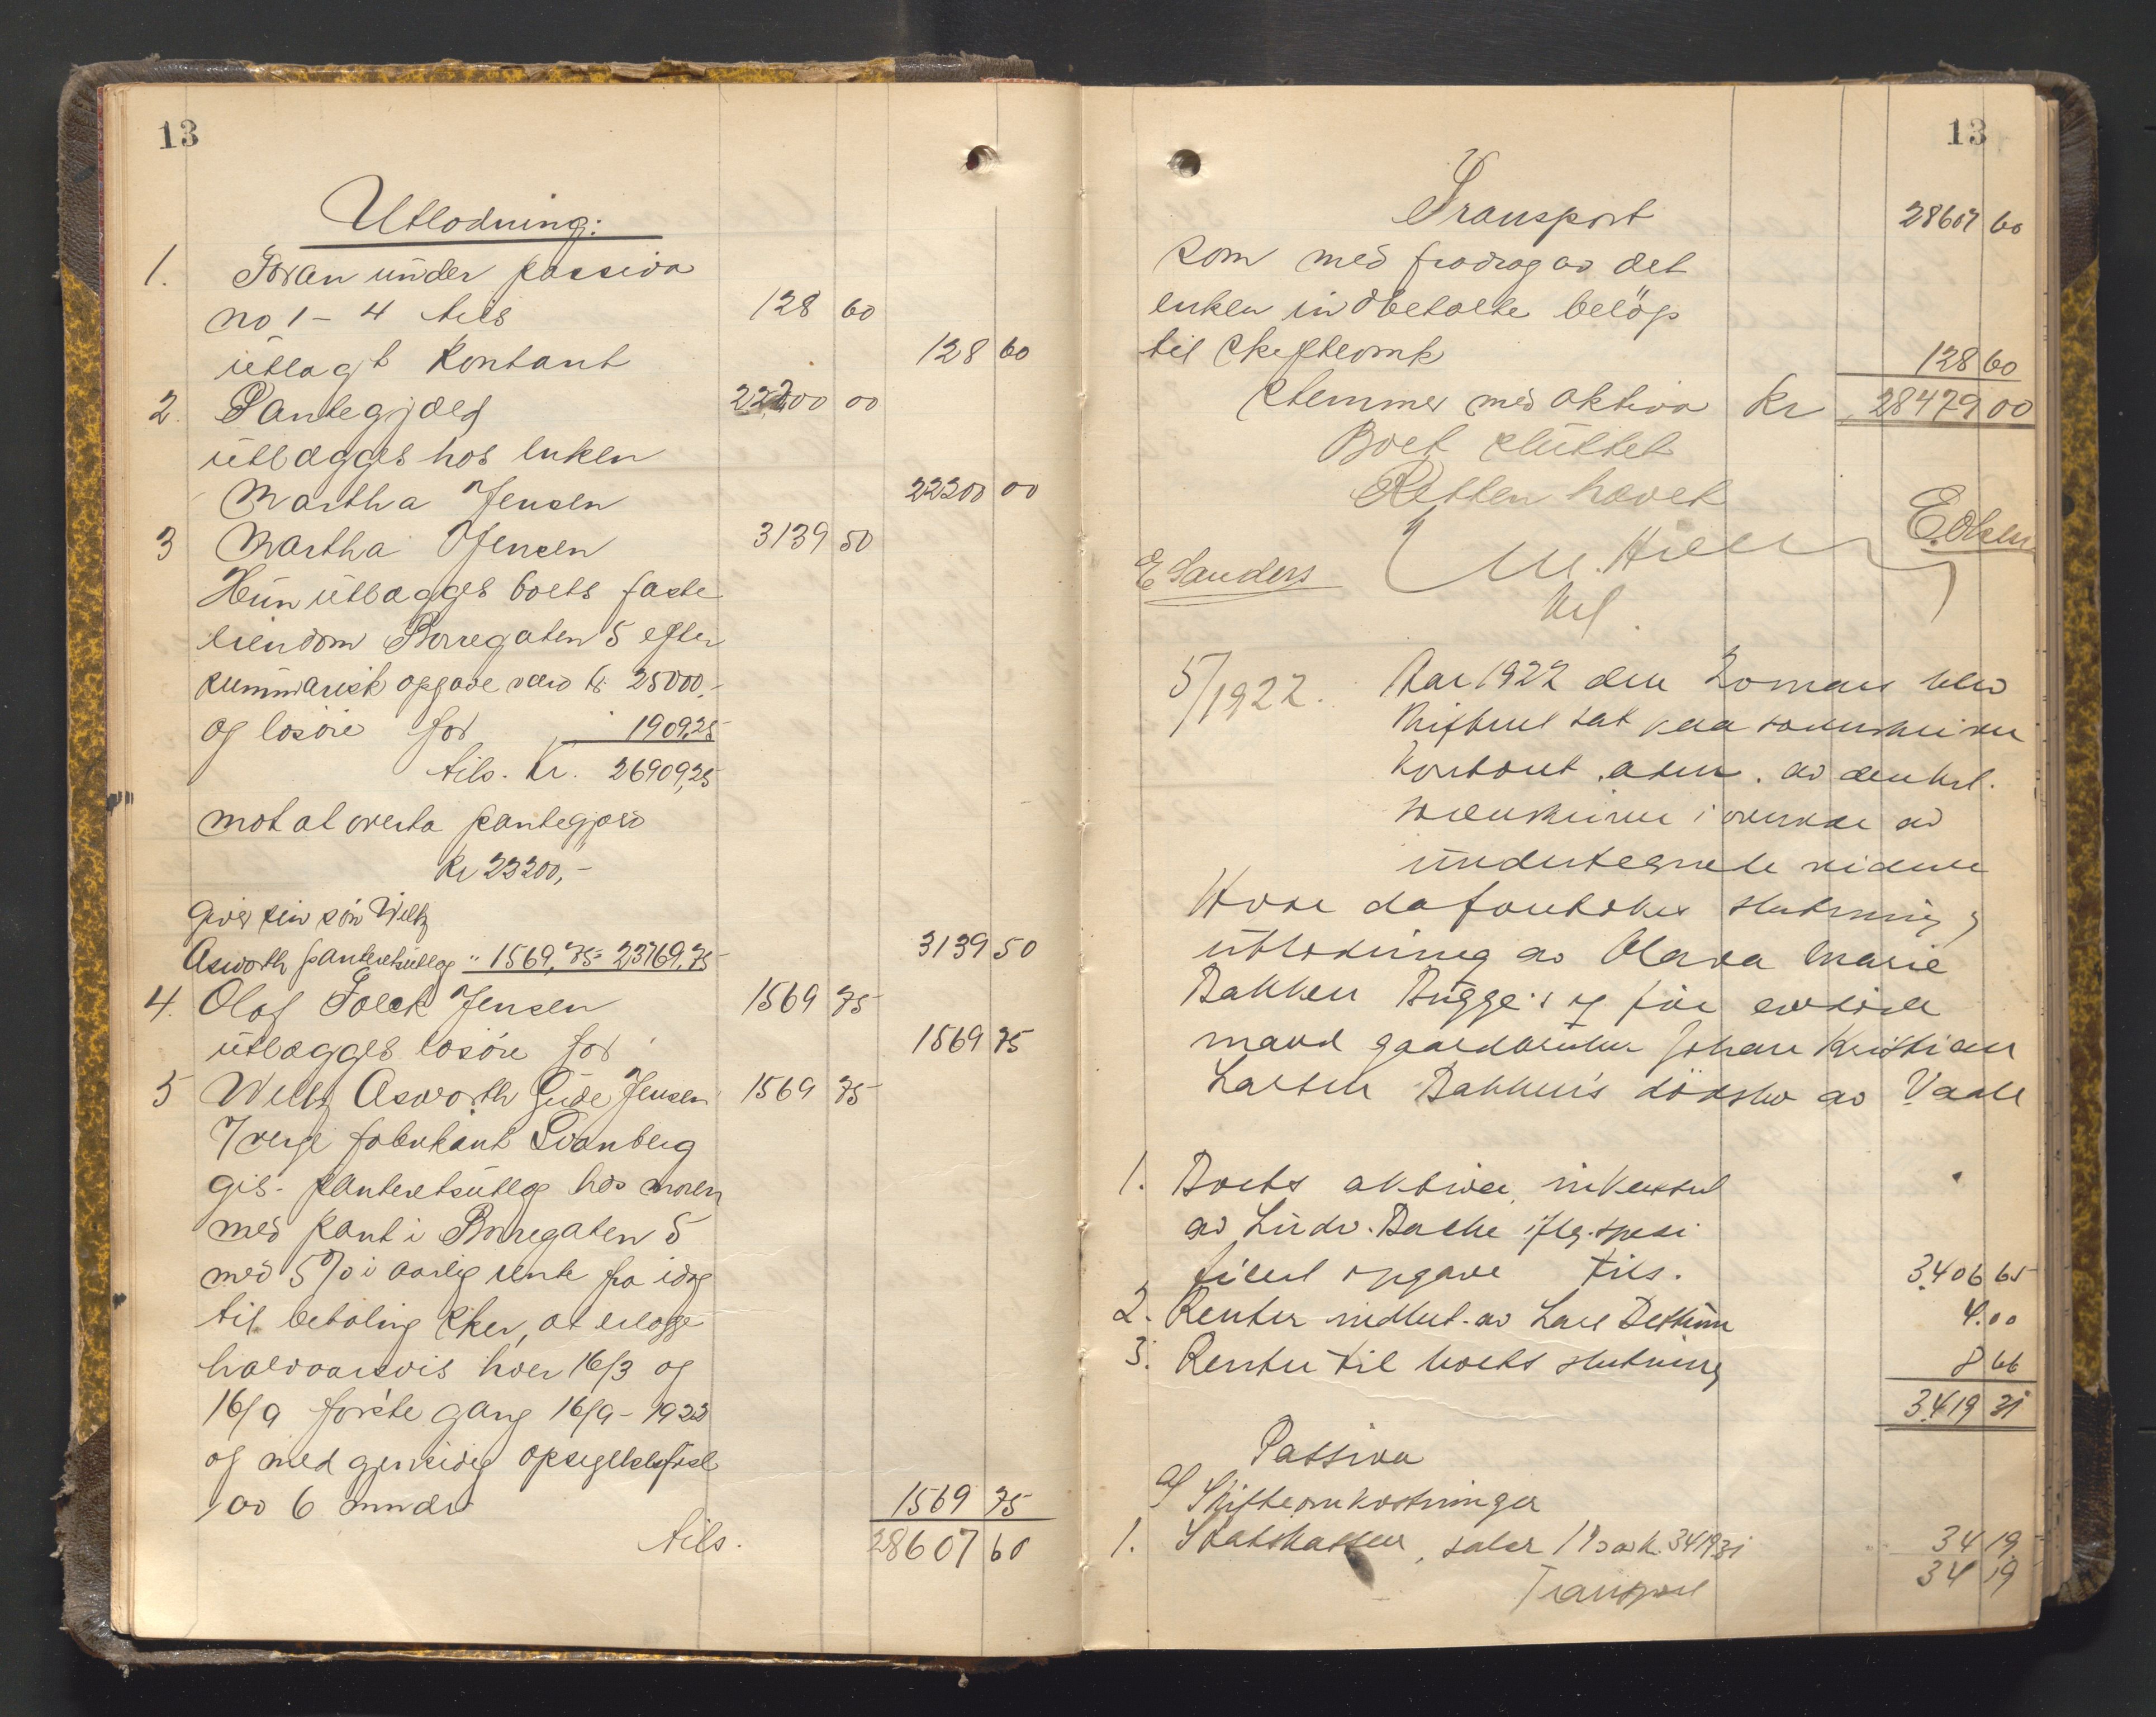 13
Utlodning:
1. Foran under passiva
no 1 – 4 tils 128 60
utlagt kontant 128 60
2. Pantegjæld 22200 00
utlægges hos enken
Martha Jensen 22200 00
3 Martha Jensen 3139 50
Hun utlægges boets faste
eiendom Borregaten 5 efter
summarisk opgave værd kr. 25000,-
og losöre for 1909,25
tils. Kr. 26909,25
mot at overta pantegjæld
Kr 22200,-
giver sin sön Welly
Asworth panteretsutlæg " 1569,75 = 23769,75 3139 50
4. Olaf Falck Jensen 1569 75
utlægges losöre for 1569 75
5 Welly Asworth Gude Jensen 1569 75
/ verge fabrikant Svanberg
gis panteretsutlæg hos moren
med pant i Borregaten 5
med 5 % i aarlig rente fra idag
til betaling sker, at erlægge
halvaarsvis hver 16/3 og
16/9 förste gang 16/9 – 1922
og med gjensidig opsigelsesfrist
av 6 mndr. 1569 75
tils. 28607 60
13
Transport 28607 60
som med fradrag av det
enken indbetalte belöp
til skifteomk 128 60
stemmer med aktiva Kr 28479 00
Boet sluttet
Retten hævet
E. Olsen
E Sanders
5/1922. Aar 1922 den 20 mars blev
skifteret sat paa sorenskriver
kontoret av den kst.
sorenskriver i overvær av
undertegnede vidner
Hvor da foretokes slutning &
utlodning av Olava Marie
Bakken Bugge's og för avdöde
mand gaardbruker Johan Kristian
Larsen Bakken's dödsbo av Vaale
1. Boets aktiva, inkassert
av Ludv. Bache iflg. spesi
ficert opgave tils. 3406 65
2. Renter indbet. av Lars 4.00
3. Renter til boets slutning 8 66
3419 31
Passiva
a/ Skifteomkostninger
1. Statskassen, salær 1 % av k. 3419 31 34 19
Transport 34 19